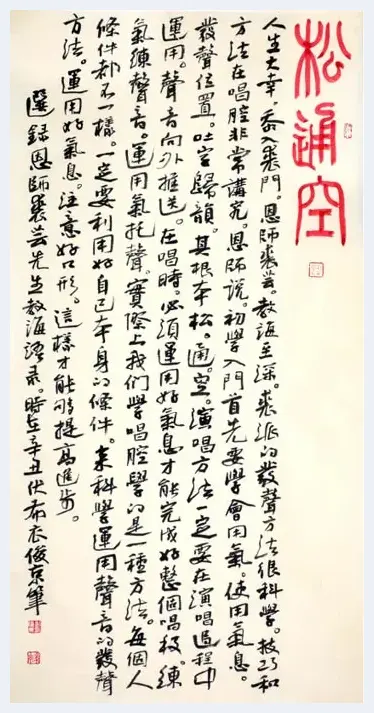 松通空
人生大幸。忝入裘門。恩師裘芸。教誨至深。裘派的發聲方法很科學。技巧和
方法在唱腔非常講究。恩師說。初學入門首先要學會用氣。使用氣息。
發聲位置。吐字歸韻。其根本松。通。空。演唱方法一定要在演唱過程中
運用。聲音向外推送。在唱時。必須運用好氣息才能完成好整個唱段。練
氣練聲音。運用氣托聲。實際上我們學唱腔學的是一種方法。每個人
條件都不一樣。一定要利用好自己本身的條件。來科學運用聲音的發聲
方法。運用好氣息。注意好口形。這樣才能夠提高進步。
選録恩師裘芸先生教誨語录。時在辛丑伏布衣俊京筆